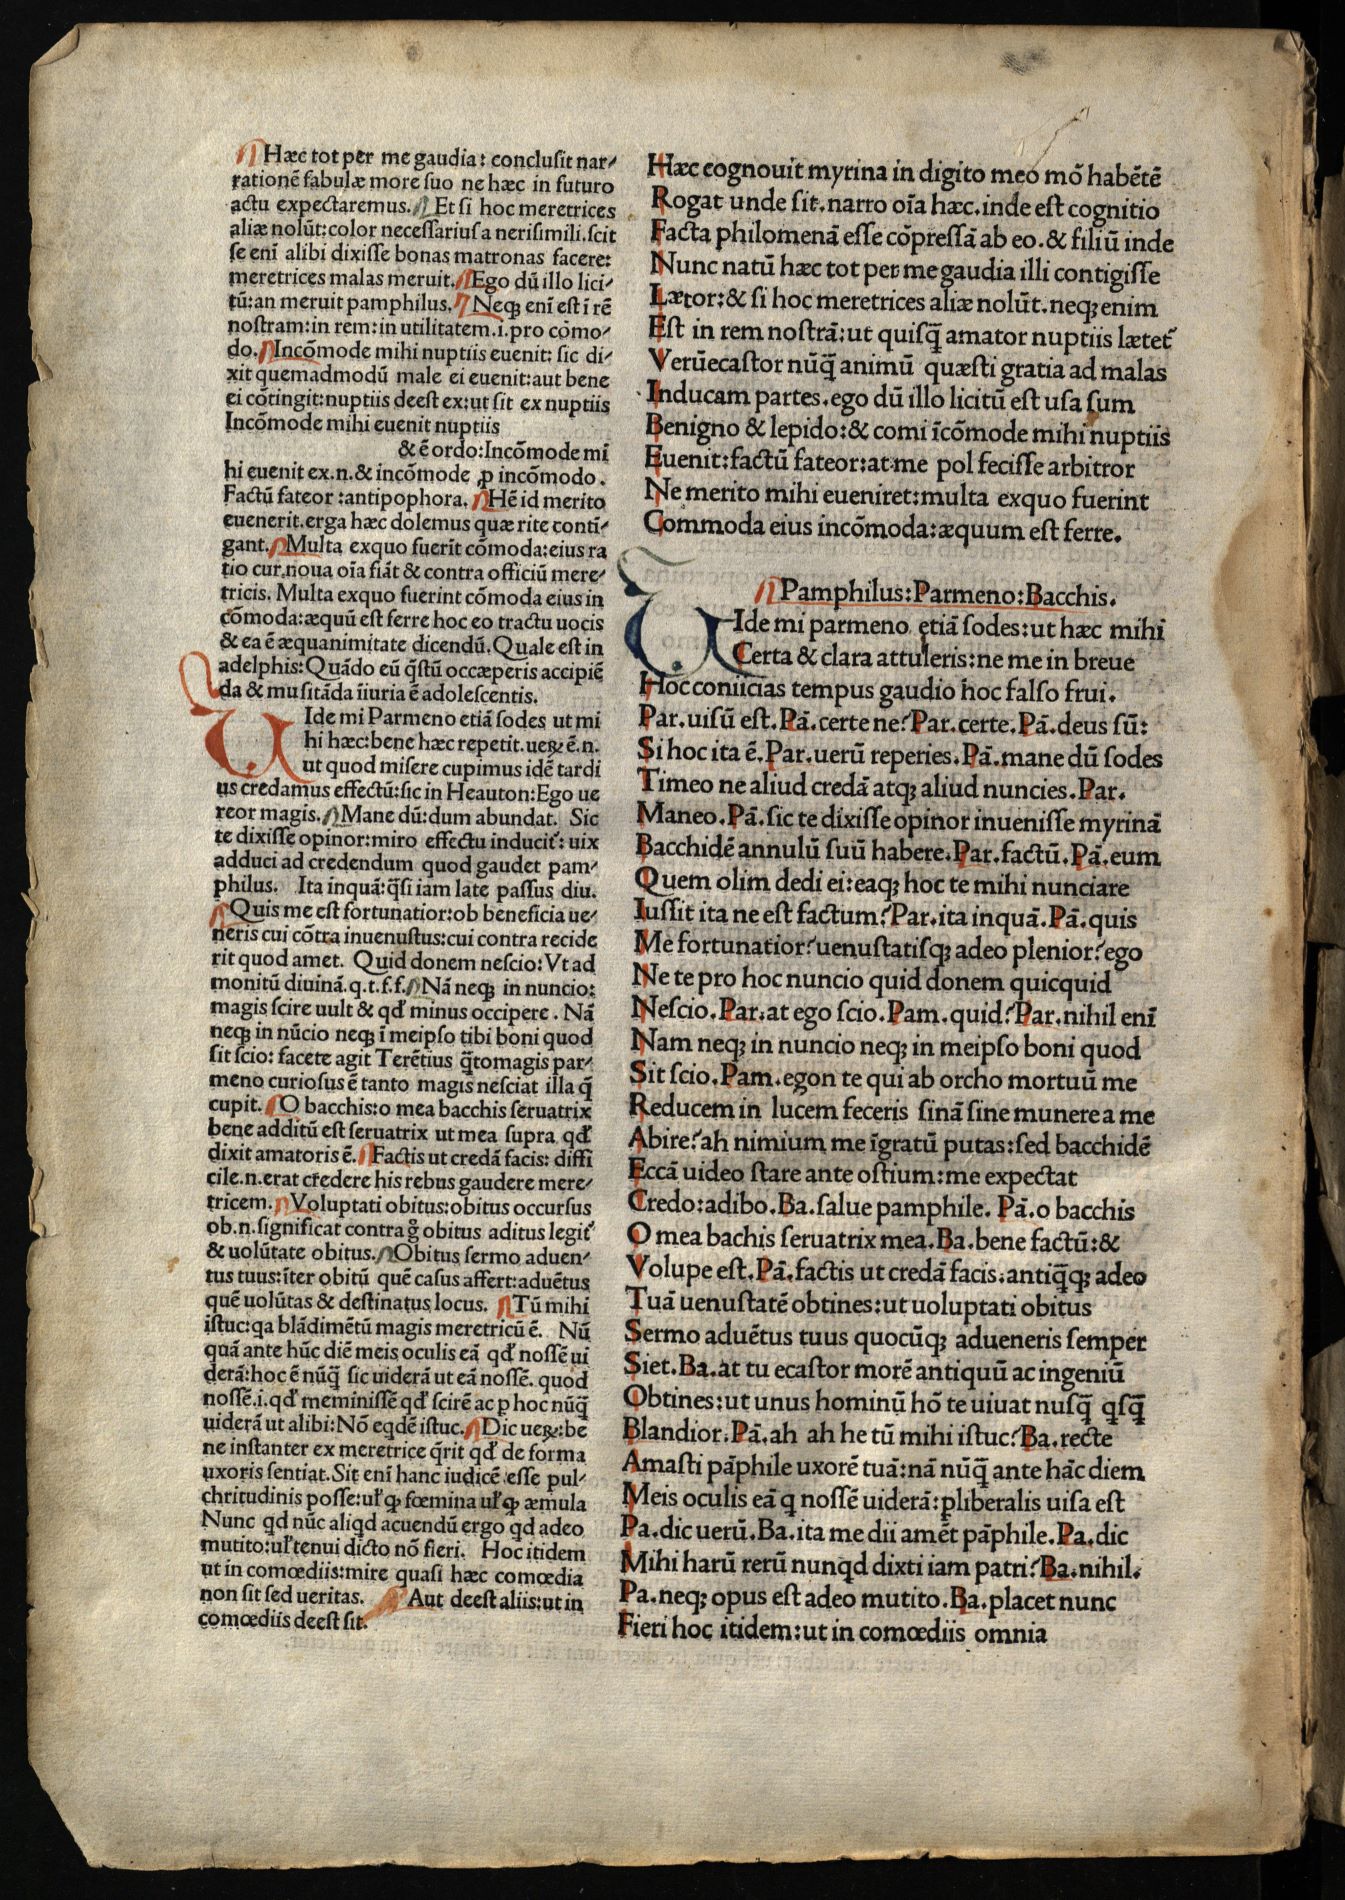 Hæc tot per me gaudia: conclusit nar-
rationē fabulæ more suo ne hæc in futuro
actu expectaremus. Et si hoc meretrices
aliæ nolūt:color necessarius a uerisimili.scit
se enī alibi dixisse bonas matronas facere:
meretrices malas meruit. Ego dū illo lici-
tū:an meruit pamphilus. Neqꝫ enī est ī rē
nostram:in rem:in utilitatem.i.pro cōmo-
do. Incōmode mihi nuptiis euenit: sic di-
xit quemadmodū male ei euenit:aut bene
ei cōtingit:nuptiis deest ex:ut sit ex nuptiis
Incōmode mihi euenit nuptiis
& ē ordo:Incōmode mi
hi euenit ex.n.& incōmode ꝓ incōmodo.
Factū fateor:antipophora. Hē id merito
euenerit.erga hæc dolemus quæ rite conti-
gant. Multa exquo fuerīt cōmoda:eius ra
tio cur.noua oīa fiāt & contra officiū mere-
tricis. Multa exquo fuerint cōmoda eius in
cōmoda:æquū est ferre hoc eo tractu uocis
& ea ē æquanimitate dicendū. Quale est in
adelphis:Quādo eū q̄stū occæperis accipiē
da & musitāda īiuria ē adolescentis.
UIde mi Parmeno etiā sodes ut mi
hi hæc:bene hæc repetit.ueꝝ ē.n.
ut quod misere cupimus idē tardi
us credamus effectū:sic in Heauton:Ego ue
reor magis. Mane dū:dum abundat. Sic
te dixisse opinor:miro effectu inducit᷑: uix
adduci ad credendum quod gaudet pam-
philus. Ita inquā:q̄si iam late passus diu.
Quis me est fortunatior:ob beneficia ue-
neris cui cōtra inuenustus:cui contra recide
rit quod amet. Quid donem nescio:Vt ad
monitū diuinā.q.t.f.f. Nā neqꝫ in nuncio:
magis scire uult & qđ minus occipere. Nā
neqꝫ in nūcio neqꝫ ī meipso tibi boni quod
sit scio: facete agit Terētius q̄tomagis par-
meno curiosus ē tanto magis nesciat illa q̄
cupit. O bacchis:o mea bacchis seruatrix
bene additū est seruatrix ut mea supra qđ
dixit amatoris ē. Factis ut credā facis: diffi
cile.n.erat credere his rebus gaudere mere-
tricem. Voluptati obitus:obitus occursus
ob.n.significat contra obitus aditus legit᷑
& uolūtate obitus. Obitus sermo aduen-
tus tuus:īter obitū quē casus affert:aduētus
quē uolūtas & destinatus locus. Tū mihi
istuc:qa blādimētū magis meretricū ē. Nū
quā ante hūc diē meis oculis eā qđ nossē ui
derā:hoc ē nūq̄ sic uiderā ut eā nossē. quod
nossē.i.qđ meminissē qđ scirē ac p hoc nūq̄
uiderā ut alibi:Nō eqdē istuc. Dic ueꝝ:be
ne instanter ex meretrice q̄rit qđ de forma
uxoris sentiat.Sit enī hanc iudicē esse pul-
chritudinis posse:uł ꝙ fœmina uł ꝙ æmula
Nunc qd nūc aliqd acuendū ergo qd adeo
mutito:uł tenui dicto nō fieri. Hoc itidem
ut in comœdiis:mire quasi hæc comœdia
non sit sed ueritas. Aut deest aliis:ut in
comœdiis deest sit.
Hæc cognouit myrina in digito meo mō habētē
Rogat unde sit.narro oīa hæc.inde est cognitio
Facta philomenā esse cōpressā ab eo.& filiū inde
Nunc natū hæc tot per me gaudia illi contigisse
Lætor:& si hoc meretrices aliæ nolūt.neqꝫ enim
Est in rem nostrā:ut quisq̄ amator nuptiis lætet᷑
Verūecastor nūq̄ animū quæsti gratia ad malas
Inducam partes.ego dū illo licitū est usa sum
Benigno & lepido:& comi īcōmode mihi nuptiis
Euenit:factū fateor:at me pol fecisse arbitror
Ne merito mihi eueniret:multa exquo fuerint
Commoda eius incōmoda:æquum est ferre.
Pamphilus:Parmeno:Bacchis.
UIde mi parmeno etiā sodes:ut hæc mihi
Certa & clara attuleris:ne me in breue
Hoc coniicias tempus gaudio hoc falso frui.
Par.uisū est.Pā.certe ne?Par.certe.Pā.deus sū:
Si hoc ita ē.Par.uerū reperies.Pā.mane dū sodes
Timeo ne aliud credā atqꝫ aliud nuncies.Par.
Maneo.Pā.sic te dixisse opinor inuenisse myrinā
Bacchidē annulū suū habere.Par.factū.Pā.eum
Quem olim dedi ei:eaqꝫ hoc te mihi nunciare
Iussit ita ne est factum?Par.ita inquā.Pā.quis
Me fortunatior?uenustatisqꝫ adeo plenior?ego
Ne te pro hoc nuncio quid donem quicquid
Nescio.Par.at ego scio.Pam.quid?Par.nihil enī
Nam neqꝫ in nuncio neqꝫ in meipso boni quod
Sit scio.Pam.egon te qui ab orcho mortuū me
Reducem in lucem feceris sinā sine munere a me
Abire?ah nimium me īgratū putas:sed bacchidē
Eccā uideo stare ante ostium:me expectat
Credo:adibo.Ba.salue pamphile. Pā.o bacchis
O mea bachis seruatrix mea.Ba.bene factū:&
Volupe est.Pā.factis ut credā facis.antiq̄qꝫ adeo
Tuā uenustatē obtines:ut uoluptati obitus
Sermo aduētus tuus quocūqꝫ adueneris semper
Siet.Ba.at tu ecastor morē antiquū ac ingeniū
Obtines:ut unus hominū hō te uiuat nusq̄ qsq̄
Blandior.Pā.ah ah he tū mihi istuc?Ba.recte
Amasti pāphile uxorē tuā:nā nūq̄ ante hāc diem
Meis oculis eā q nossē uiderā:pliberalis uisa est
Pa.dic uerū.Ba.ita me dii amēt pāphile.Pa.dic
Mihi harū rerū nunqd dixti iam patri?Ba.nihil.
Pa.neqꝫ opus est adeo mutito.Ba.placet nunc
Fieri hoc itidem:ut in comœdiis omnia